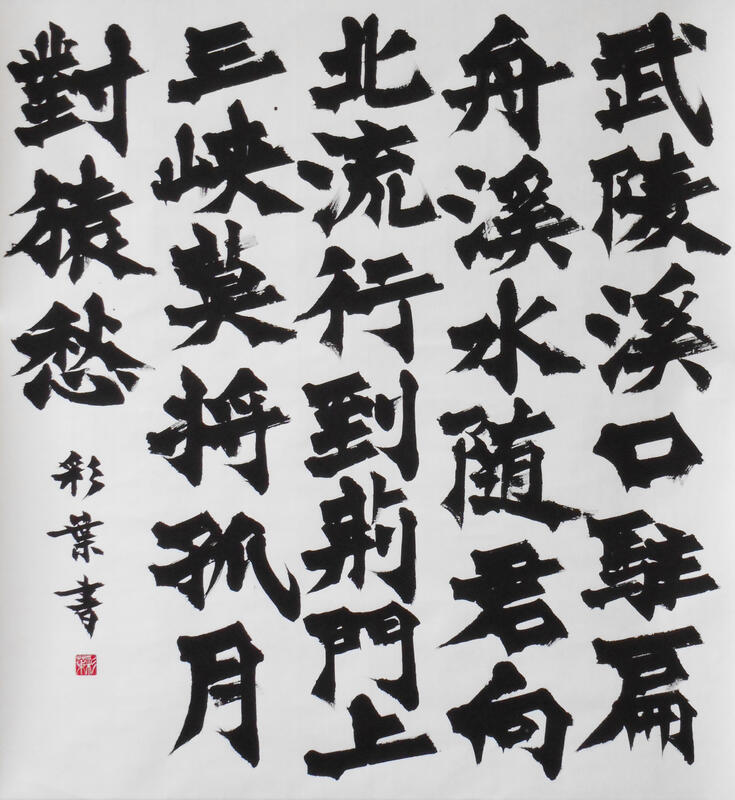 武陵溪口駐扁
舟溪水随君向
北流行到荊門上
三峡莫将孤月
對猿愁
彩葉書